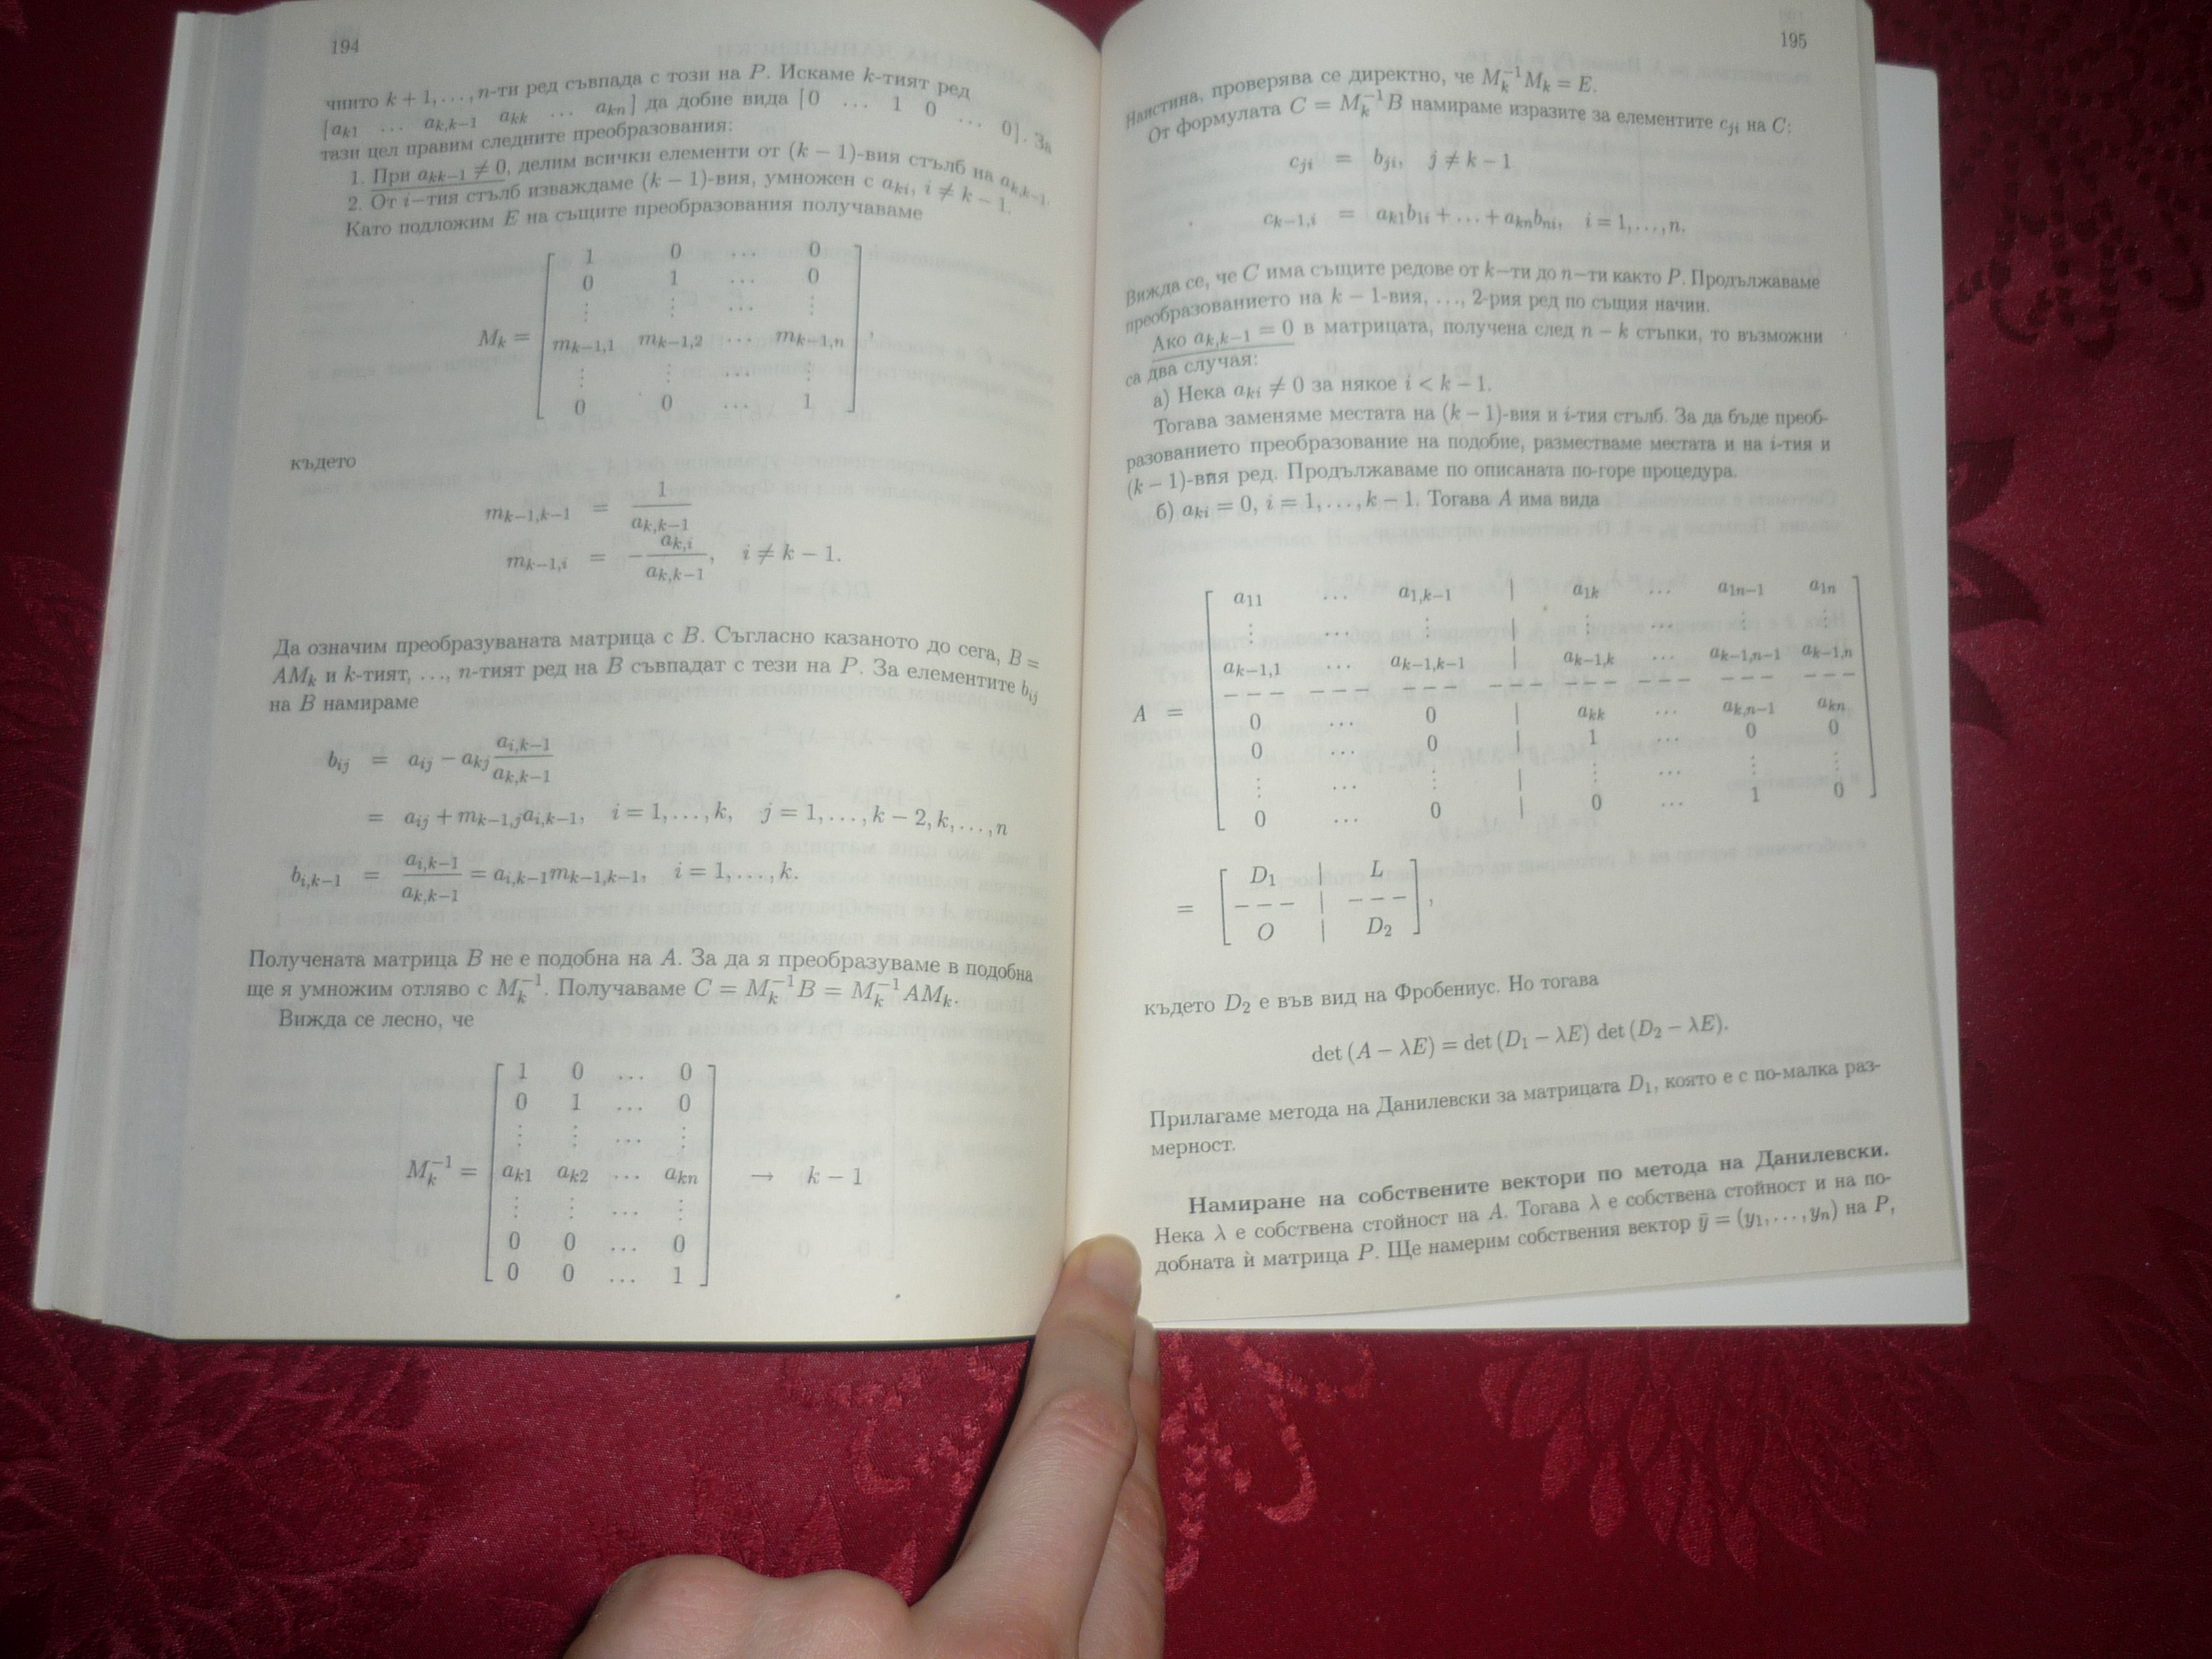 194
чиито k + 1, . . . , n-ти ред съвпада с този на P. Искаме k-тият ред
[a_{k1} … a_{k,k−1} a_{kk} … a_{kn}] да добие вида [0 … 1 0 … 0]. За
тази цел правим следните преобразования:
1. При a_{kk−1} ≠ 0, делим всички елементи от (k − 1)-вия стълб на a_{k,k−1}.
2. От i−тия стълб изваждаме (k − 1)-вия, умножен с a_{ki}, i ≠ k − 1.
Като подложим E на същите преобразования получаваме
1 0 … 0
0 1 … 0
⋮ ⋮ … ⋮
M_k = [ m_{k−1,1} m_{k−1,2} … m_{k−1,n} ],
⋮ ⋮ … ⋮
0 0 … 1
където
m_{k−1,k−1} = 1 / a_{k,k−1}
m_{k−1,i} = − a_{k,i} / a_{k,k−1}, i ≠ k − 1.
Да означим преобразуваната матрица с B. Съгласно казаното до сега, B =
AM_k и k-тият, …, n-тият ред на B съвпадат с тези на P. За елементите b_{ij}
на B намираме
b_{ij} = a_{ij} − a_{kj} a_{i,k−1} / a_{k,k−1}
= a_{ij} + m_{k−1,j}a_{i,k−1}, i = 1, . . . , k, j = 1, . . . , k − 2, k, . . . , n
b_{i,k−1} = a_{i,k−1} / a_{k,k−1} = a_{i,k−1}m_{k−1,k−1}, i = 1, . . . , k.
Получената матрица B не е подобна на A. За да я преобразуваме в подобна
ще я умножим отляво с M_k^{−1}. Получаваме C = M_k^{−1}B = M_k^{−1}AM_k.
Вижда се лесно, че
1 0 … 0
0 1 … 0
⋮ ⋮ … ⋮
M_k^{−1} = [ a_{k1} a_{k2} … a_{kn} ] → k − 1
⋮ ⋮ … ⋮
0 0 … 0
0 0 … 1
195
Наистина, проверява се директно, че M_k^{−1}M_k = E.
От формулата C = M_k^{−1}B намираме изразите за елементите c_{ji} на C:
c_{ji} = b_{ji}, j ≠ k − 1
c_{k−1,i} = a_{k1}b_{1i} + . . . + a_{kn}b_{ni}, i = 1, . . . , n.
Вижда се, че C има същите редове от k−ти до n−ти както P. Продължаваме
преобразованието на k − 1-вия, …, 2-рия ред по същия начин.
Ако a_{k,k−1} = 0 в матрицата, получена след n − k стъпки, то възможни
са два случая:
а) Нека a_{ki} ≠ 0 за някое i < k − 1.
Тогава заменяме местата на (k − 1)-вия и i-тия стълб. За да бъде преоб-
разованието преобразование на подобие, разместваме местата и на i-тия и
(k − 1)-вия ред. Продължаваме по описаната по-горе процедура.
б) a_{ki} = 0, i = 1, . . . , k − 1. Тогава A има вида
a_{11} … a_{1,k−1} | a_{1k} … a_{1n−1} a_{1n}
⋮ … ⋮ | ⋮ … ⋮ ⋮
a_{k−1,1} … a_{k−1,k−1} | a_{k−1,k} … a_{k−1,n−1} a_{k−1,n}
A = − − − − − − − − − − − − − − − − − − − − − − − −
0 … 0 | a_{kk} … a_{k,n−1} a_{kn}
0 … 0 | 1 … 0 0
⋮ … ⋮ | ⋮ … ⋮ ⋮
0 … 0 | 0 … 1 0
D_1 | L
= [ − − − | − − − ],
O | D_2
където D_2 е във вид на Фробениус. Но тогава
det (A − λE) = det (D_1 − λE) det (D_2 − λE).
Прилагаме метода на Данилевски за матрицата D_1, която е с по-малка раз-
мерност.
Намиране на собствените вектори по метода на Данилевски.
Нека λ е собствена стойност на A. Тогава λ е собствена стойност и на по-
добната ѝ матрица P. Ще намерим собствения вектор ȳ = (y_1, . . . , y_n) на P,